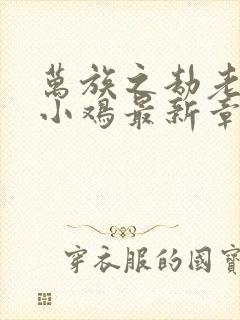 萬族之劫老
小鸡最新章
穿衣服的國寶